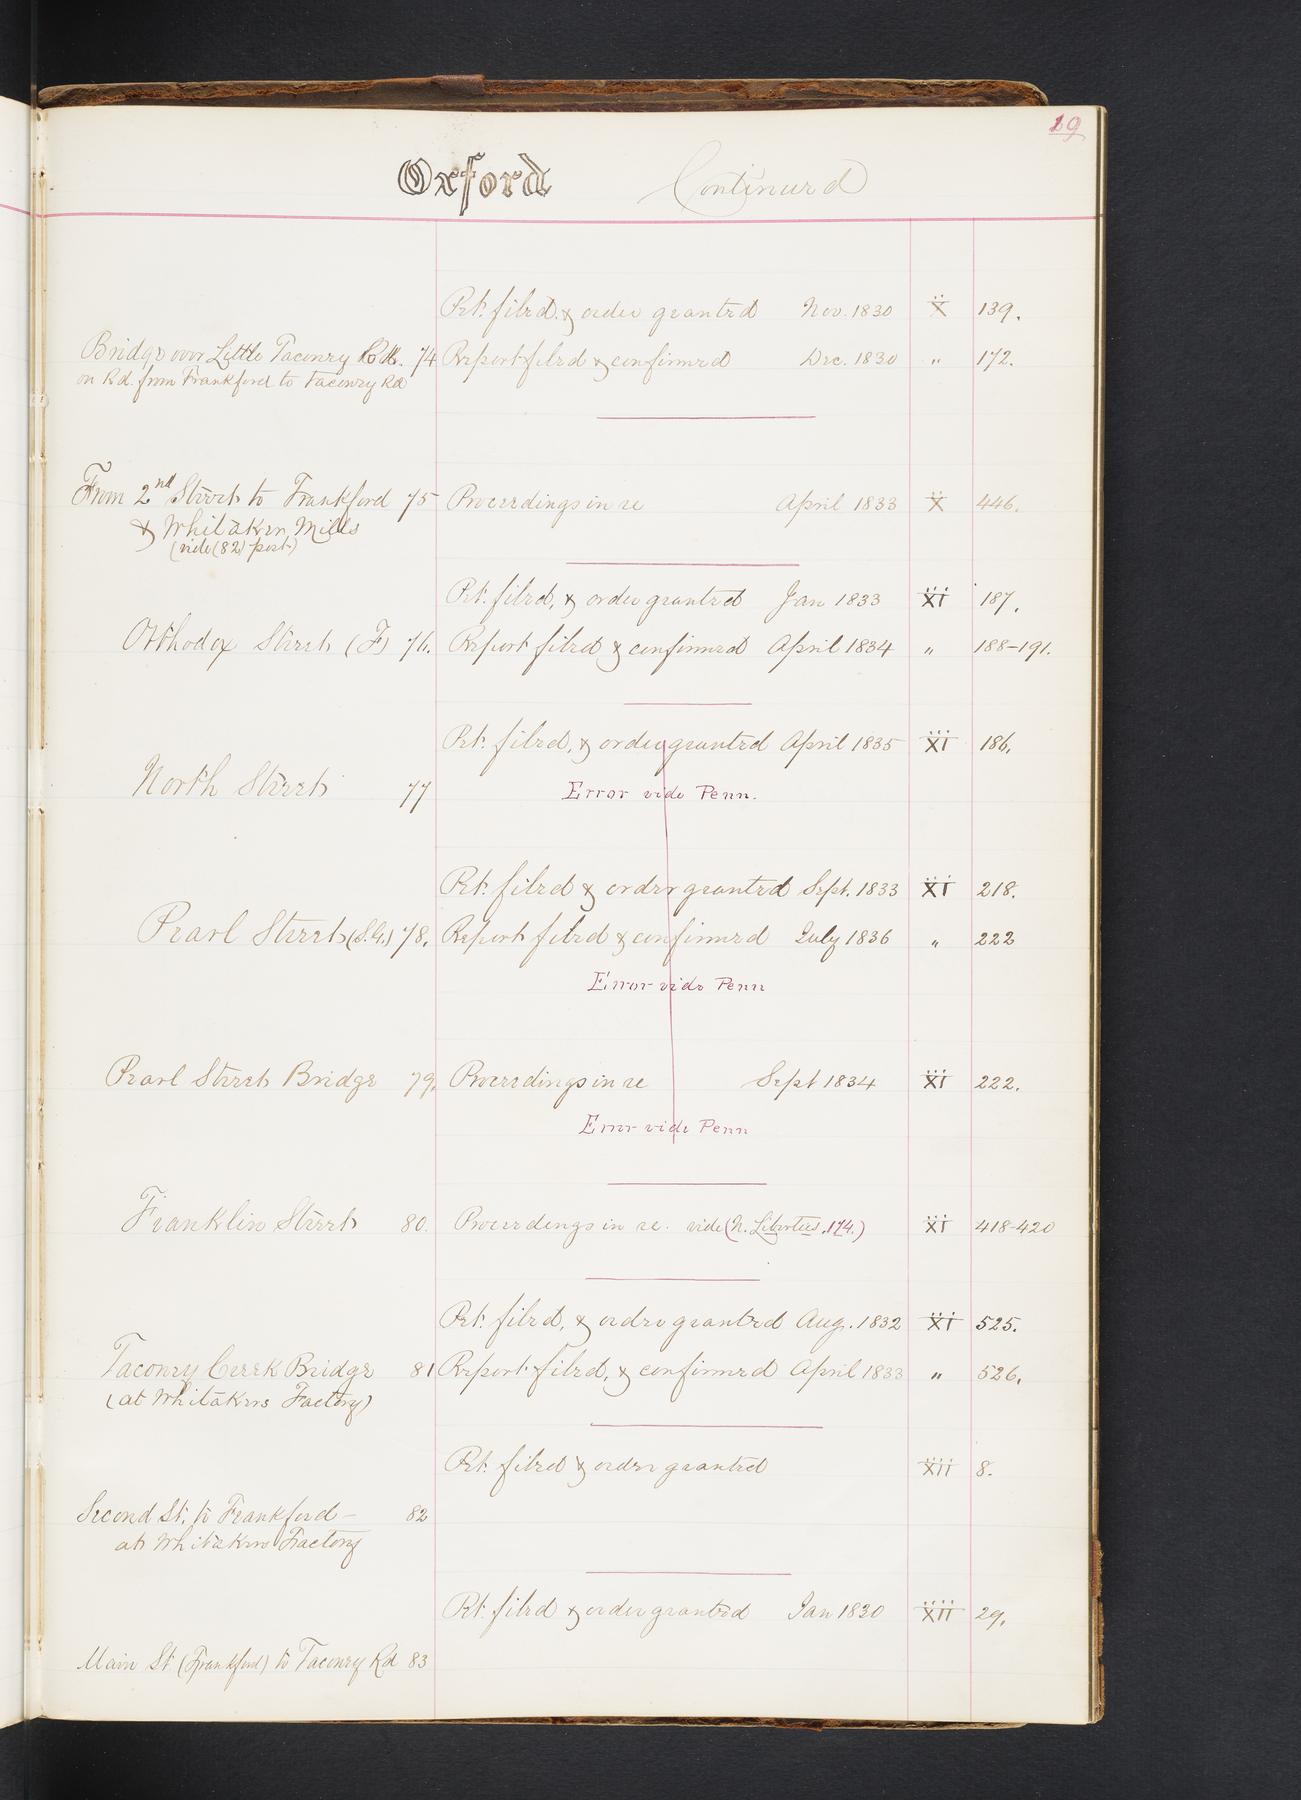 19
Oxford Continued
Pet. filed. & order granted Nov. 1830 X 139.
Bridge over Little Taconey 74 Report filed & confirmed Dec. 1830 " 172.
on Rd. from Frankford to Taconey Rd
From 2nd Street to Frankford 75 Proceedings in re April 1833 X 446.
& Whitaker Mills
(vide (82) post)
Pet. filed, & order granted Jan 1833 XI 187.
Orthodox Street (F) 76. Report filed & confirmed April 1834 " 188-191.
Pet. filed, & order granted April 1835 XI 186.
North Street 77 Error vide Penn.
Pet. filed & order granted Sept. 1833 XI 218.
Pearl Street (S.G.) 78. Report filed & confirmed July 1836 " 222
Error vide Penn
Pearl Street Bridge 79. Proceedings in re Sept 1834 XI 222.
Error vide Penn
Franklin Street 80. Proceedings in re. vide (N. Liberties. 174.) XI 418-420
Pet. filed, & order granted Aug. 1832 XI 525.
Taconey Creek Bridge 81 Report filed, & confirmed April 1833 " 526.
(at Whitakers Factory)
Pet. filed & order granted XII 8.
Second St. to Frankford - 82
at Whitakers Factory
Pet. filed & order granted Jan 1830 XII 29.
Main St (Frankford) to Taconey Rd 83